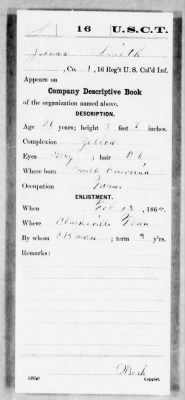 S | 16 | U.S.C.T.
James Smith
, Co. I, 16 Reg't U. S. Col'd Inf.
Appears on
Company Descriptive Book
of the organization named above.
DESCRIPTION.
Age 20 years; height 5 feet 8 inches.
Complexion Yellow
Eyes Gry; hair Blk
Where born North Carolina
Occupation Farmer
ENLISTMENT.
When Feb 13, 1864.
Where Clarksville Tenn
By whom; term 3 y'rs.
Remarks:
(383g) Copyist.